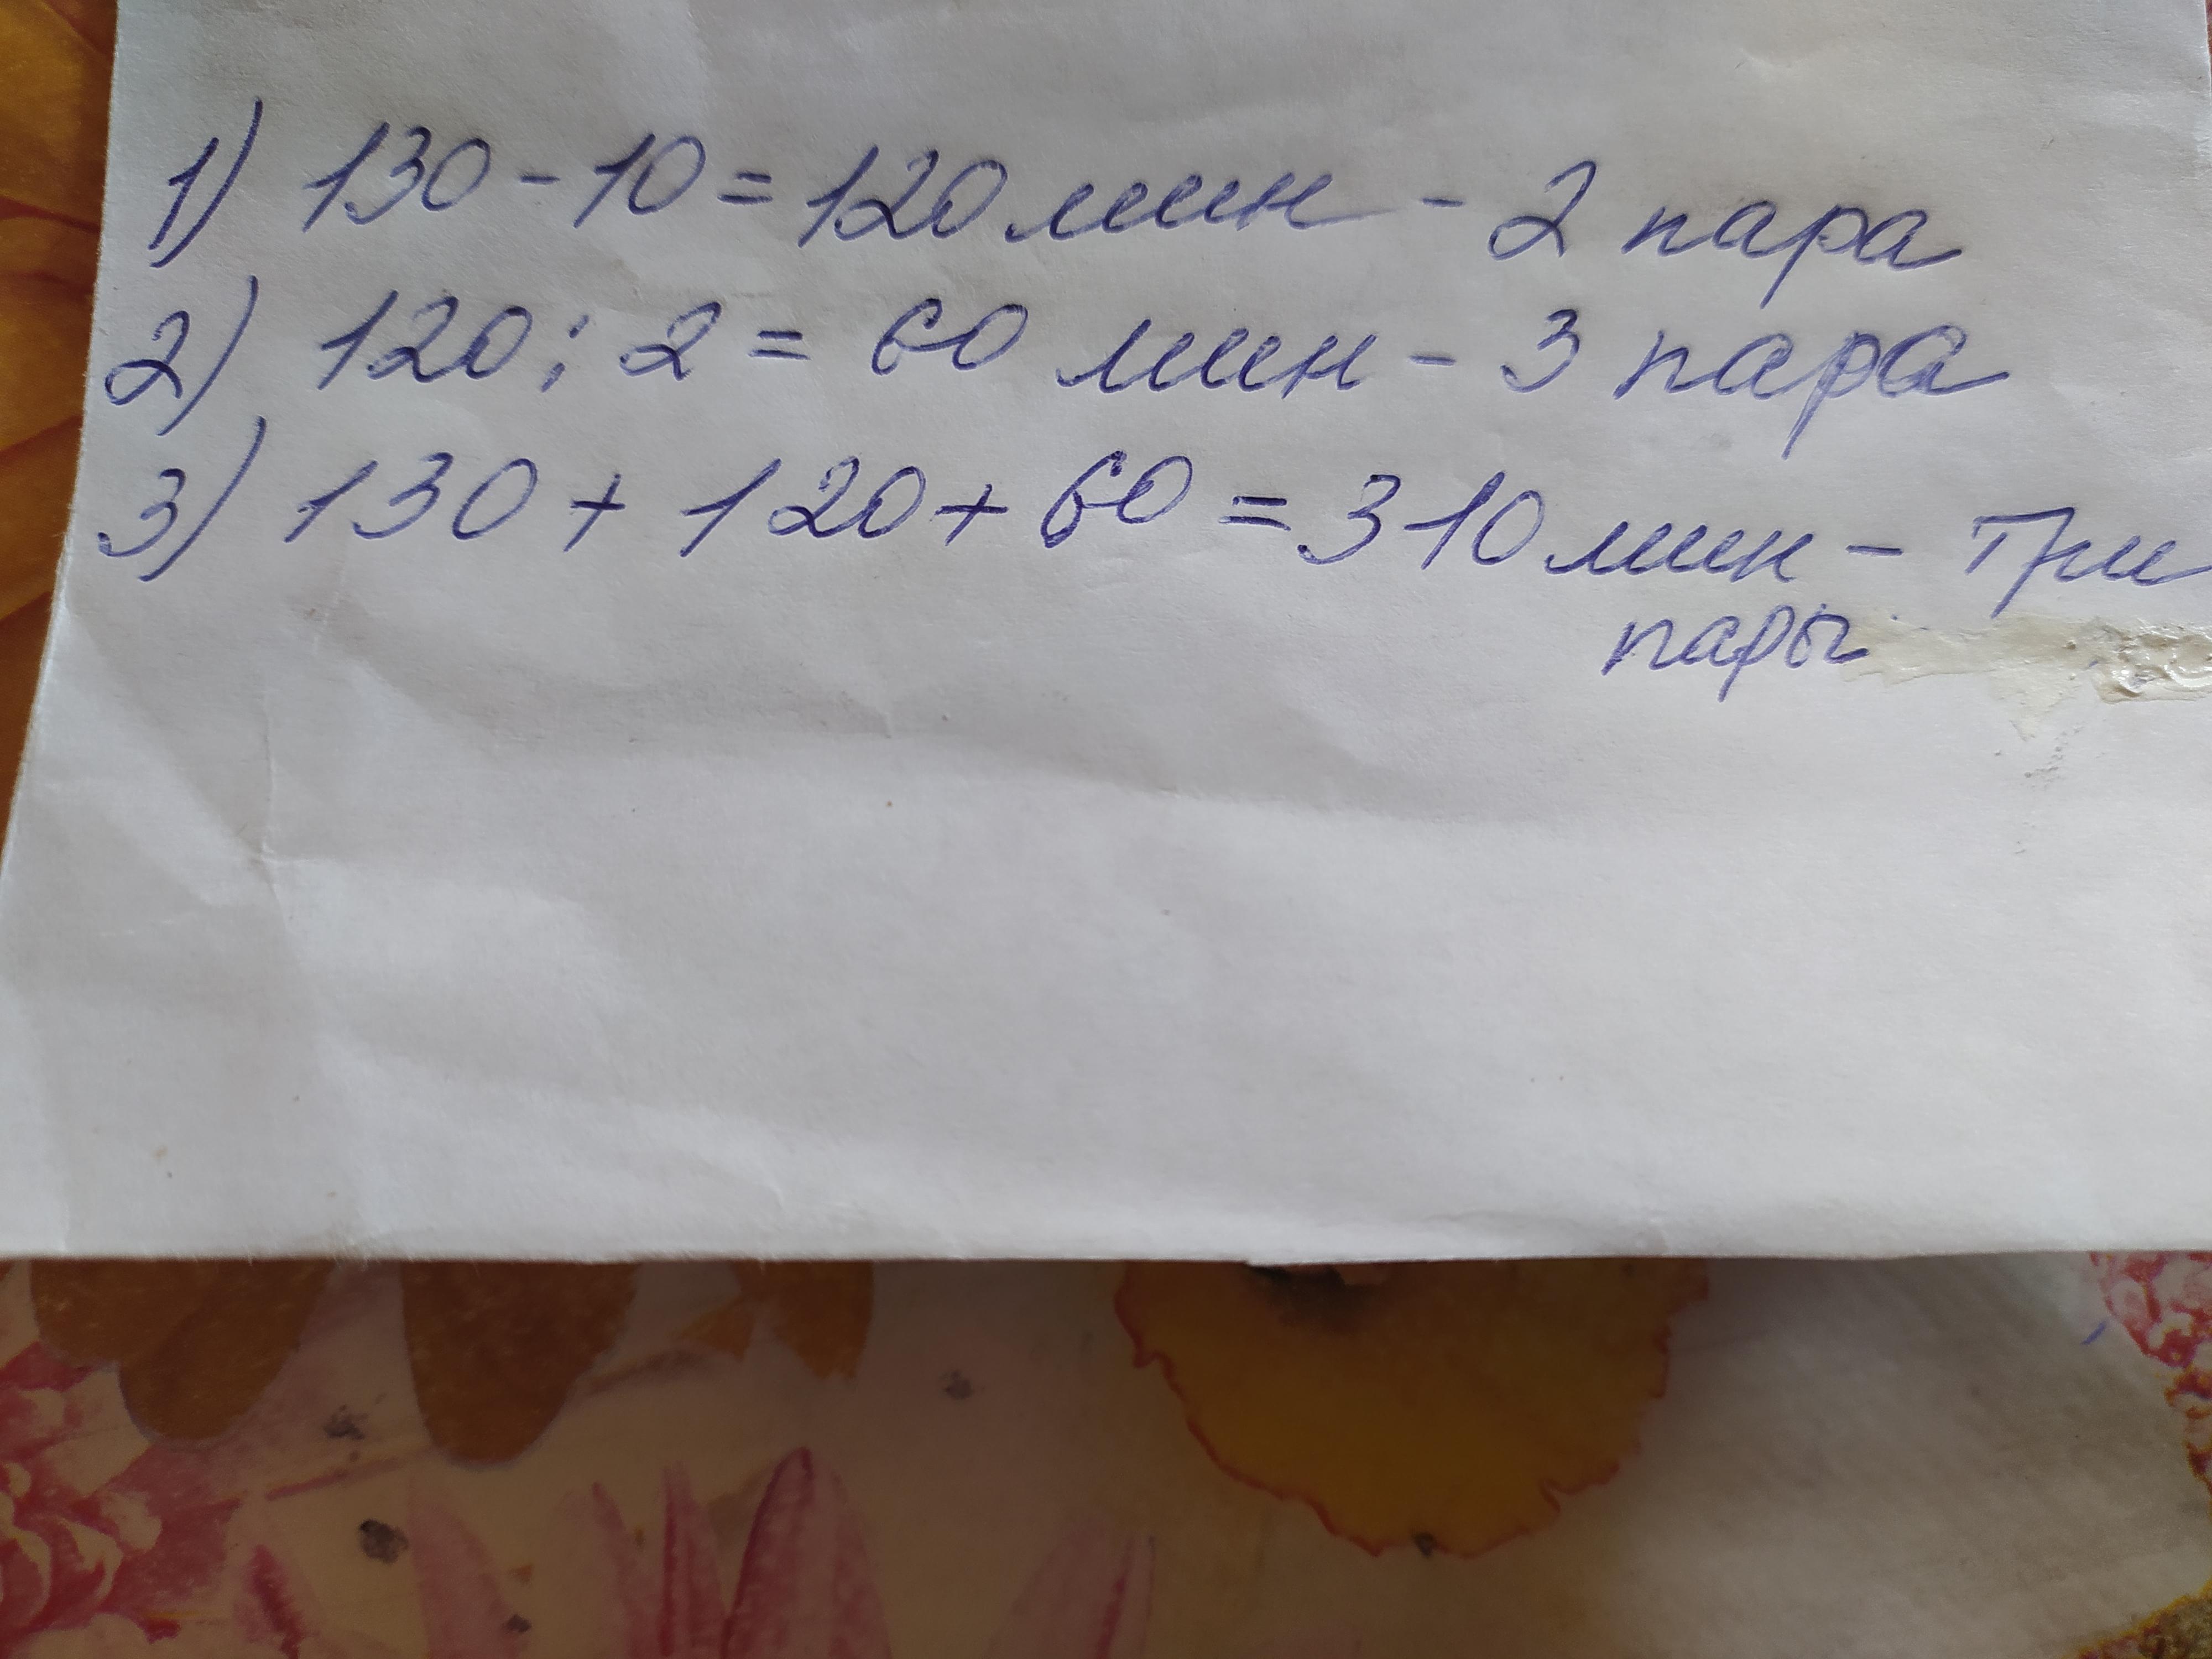 1) 130 - 10 = 120 мин - 2 пара
2) 120 : 2 = 60 мин - 3 пара
3) 130 + 120 + 60 = 310 мин - три
пары